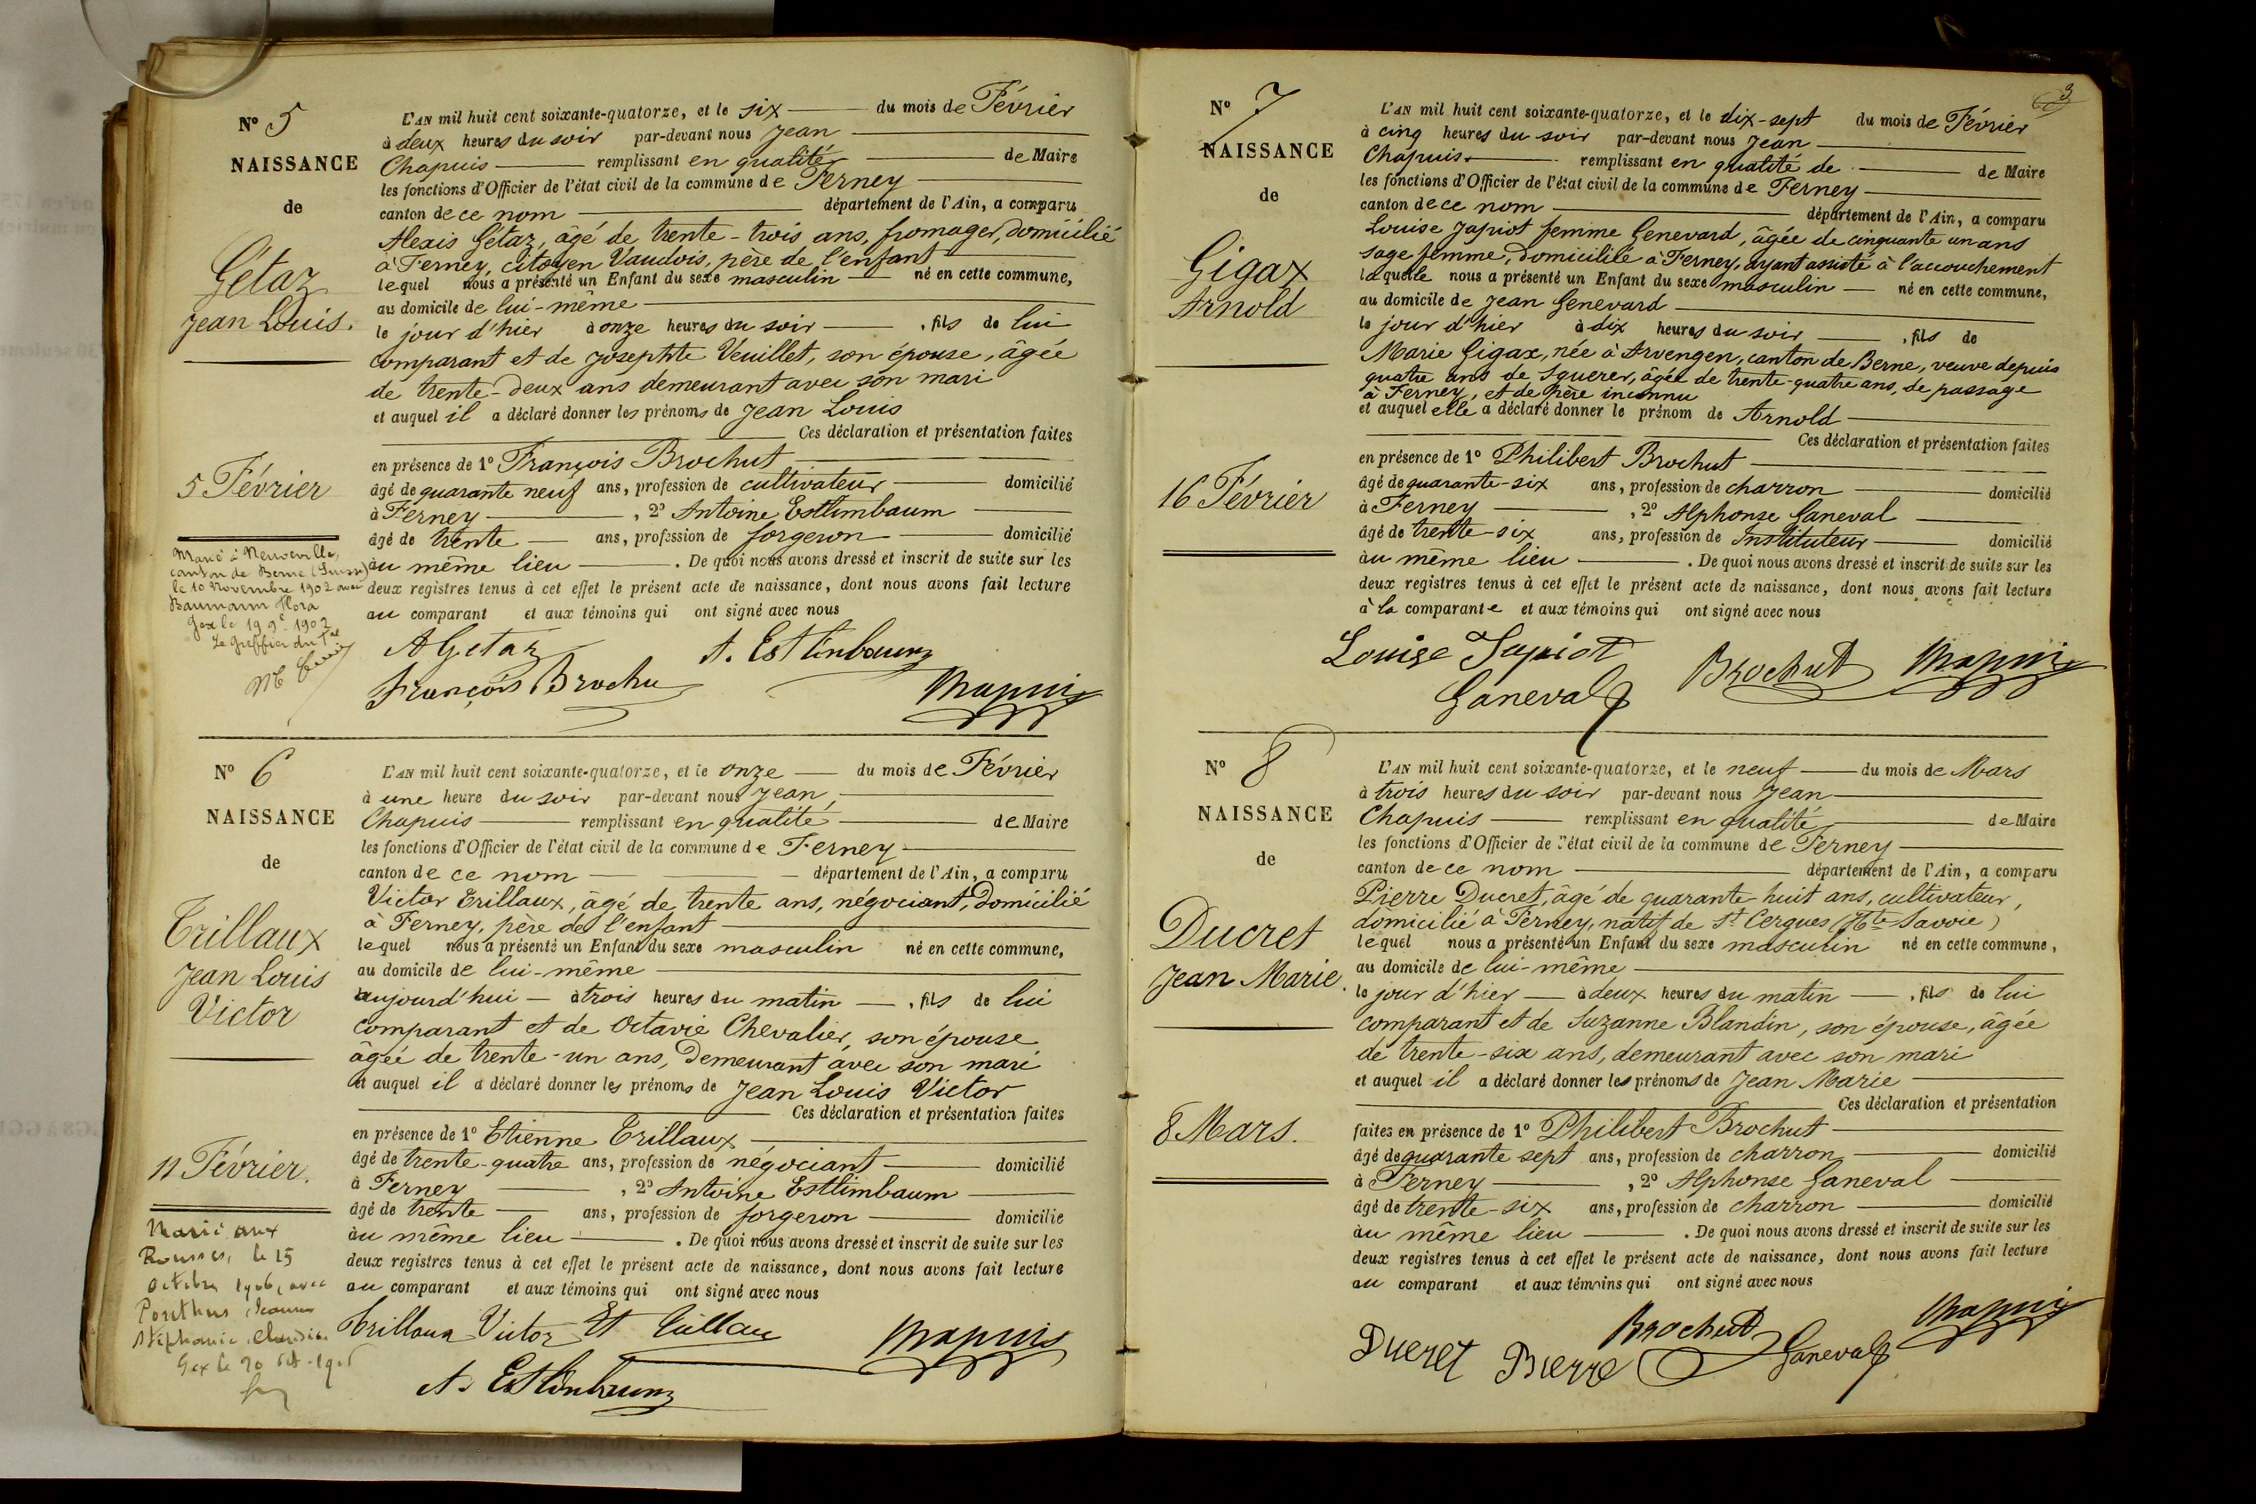 N° 5
NAISSANCE
de
Gétaz
Jean Louis.
5 Février
Marié à Neuveville,
canton de Berne (Suisse)
le 10 Novembre 1902 avec
Baumann Flora
Gex le 19 9e 1902
Le Greffier du Tal
L'AN mil huit cent soixante-quatorze, et le six du mois de Février
à deux heures du soir par-devant nous Jean
Chapuis remplissant en qualité de Maire
les fonctions d'Officier de l'état civil de la commune de Ferney
canton de ce nom département de l'Ain, a comparu
Alexis Gétaz, âgé de trente-trois ans, fromager, domicilié
à Ferney, citoyen Vaudois, père de l'enfant
lequel nous a présenté un Enfant du sexe masculin né en cette commune,
au domicile de lui-même
le jour d'hier à onze heures du soir, fils de lui
comparant et de Josephte Veuillet, son épouse, âgée
de trente-deux ans demeurant avec son mari
et auquel il a déclaré donner les prénoms de Jean Louis
Ces déclaration et présentation faites
en présence de 1° François Brochut
âgé de quarante neuf ans, profession de cultivateur domicilié
à Ferney, 2° Antoine Estlimbaum
âgé de trente ans, profession de forgeron domicilié
au même lieu. De quoi nous avons dressé et inscrit de suite sur les
deux registres tenus à cet effet le présent acte de naissance, dont nous avons fait lecture
au comparant et aux témoins qui ont signé avec nous
A Getaz A. Estlinbaum
François Brochu Chapuis
N° 6
NAISSANCE
de
Trillaux
Jean Louis
Victor
11 Février.
Marié aux
Rousses, le 15
octobre 1906, avec
Ponthus Jeanne
Stéphanie Claudia
Gex le 20 oct. 1906
L'AN mil huit cent soixante-quatorze, et le onze du mois de Février
à une heure du soir par-devant nous Jean
Chapuis remplissant en qualité de Maire
les fonctions d'Officier de l'état civil de la commune de Ferney
canton de ce nom département de l'Ain, a comparu
Victor Trillaux, âgé de trente ans, négociant, Domicilié
à Ferney, père de l'enfant
lequel nous a présenté un Enfant du sexe masculin né en cette commune,
au domicile de lui-même
aujourd'hui à trois heures du matin, fils de lui
comparant et de Octavie Chevalier, son épouse
âgée de trente-un ans, Demeurant avec son mari
et auquel il a déclaré donner les prénoms de Jean Louis Victor
Ces déclaration et présentation faites
en présence de 1° Etienne Trillaux
âgé de trente-quatre ans, profession de négociant domicilié
à Ferney, 2° Antoine Estlimbaum
âgé de trente ans, profession de forgeron domicilié
au même lieu. De quoi nous avons dressé et inscrit de suite sur les
deux registres tenus à cet effet le présent acte de naissance, dont nous avons fait lecture
au comparant et aux témoins qui ont signé avec nous
Trillaux Victor Et Trillaux Chapuis
A. Estlinbaum
3
N° 7
NAISSANCE
de
Gigax
Arnold
16 Février
L'AN mil huit cent soixante-quatorze, et le dix-sept du mois de Février
à cinq heures du soir par-devant nous Jean
Chapuis remplissant en qualité de de Maire
les fonctions d'Officier de l'état civil de la commune de Ferney
canton de ce nom département de l'Ain, a comparu
Louise Japiot femme Genevard, âgée de cinquante un ans
sage femme, domiciliée à Ferney, ayant assisté à l'accouchement
laquelle nous a présenté un Enfant du sexe masculin né en cette commune,
au domicile de Jean Genevard
le jour d'hier à dix heures du soir, fils de
Marie Gigax, née à Arvengen, canton de Berne, veuve depuis
quatre ans de Sguerer, âgée de trente-quatre ans, de passage
à Ferney, et de père inconnu
et auquel elle a déclaré donner le prénom de Arnold
Ces déclaration et présentation faites
en présence de 1° Philibert Brochut
âgé de quarante-six ans, profession de charron domicilié
à Ferney, 2° Alphonse Ganeval
âgé de trente-six ans, profession de Instituteur domicilié
au même lieu. De quoi nous avons dressé et inscrit de suite sur les
deux registres tenus à cet effet le présent acte de naissance, dont nous avons fait lecture
à la comparante et aux témoins qui ont signé avec nous
Louise Japiot Brochut Chapuis
Ganeval
N° 8
NAISSANCE
de
Ducret
Jean Marie.
8 Mars.
L'AN mil huit cent soixante-quatorze, et le neuf du mois de Mars
à trois heures du soir par-devant nous Jean
Chapuis remplissant en qualité de Maire
les fonctions d'Officier de l'état civil de la commune de Ferney
canton de ce nom département de l'Ain, a comparu
Pierre Ducret, âgé de quarante huit ans, cultivateur,
domicilié à Ferney, natif de St Cergues (Hte Savoie)
lequel nous a présenté un Enfant du sexe masculin né en cette commune,
au domicile de lui-même
le jour d'hier à deux heures du matin, fils de lui
comparant et de Suzanne Blandin, son épouse, âgée
de trente-six ans, demeurant avec son mari
et auquel il a déclaré donner les prénoms de Jean Marie
Ces déclaration et présentation
faites en présence de 1° Philibert Brochut
âgé de quarante sept ans, profession de charron domicilié
à Ferney, 2° Alphonse Ganeval
âgé de trente-six ans, profession de charron domicilié
au même lieu. De quoi nous avons dressé et inscrit de suite sur les
deux registres tenus à cet effet le présent acte de naissance, dont nous avons fait lecture
au comparant et aux témoins qui ont signé avec nous
Ducret Pierre Brochut Ganeval Chapuis